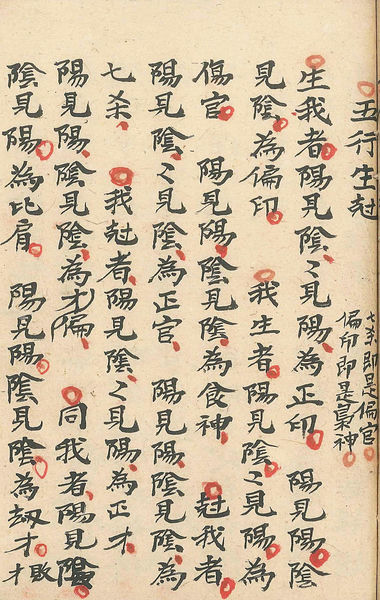 五行生尅
七杀即是偏官
偏印即是梟神
生我者陽見陰〻見陽為正印 陽見陽陰
見陰為偏印 我生者陽見陰〻見陽為
傷官 陽見陽陰見陰為食神 尅我者
陽見陰〻見陰為正官 陽見陽陰見陰為
七杀 我尅者陽見陰〻見陽為正才
陽見陽陰見陰為才偏 同我者陽見陰
陰見陽為比肩 陽見陽陰見陰為刼才敗才